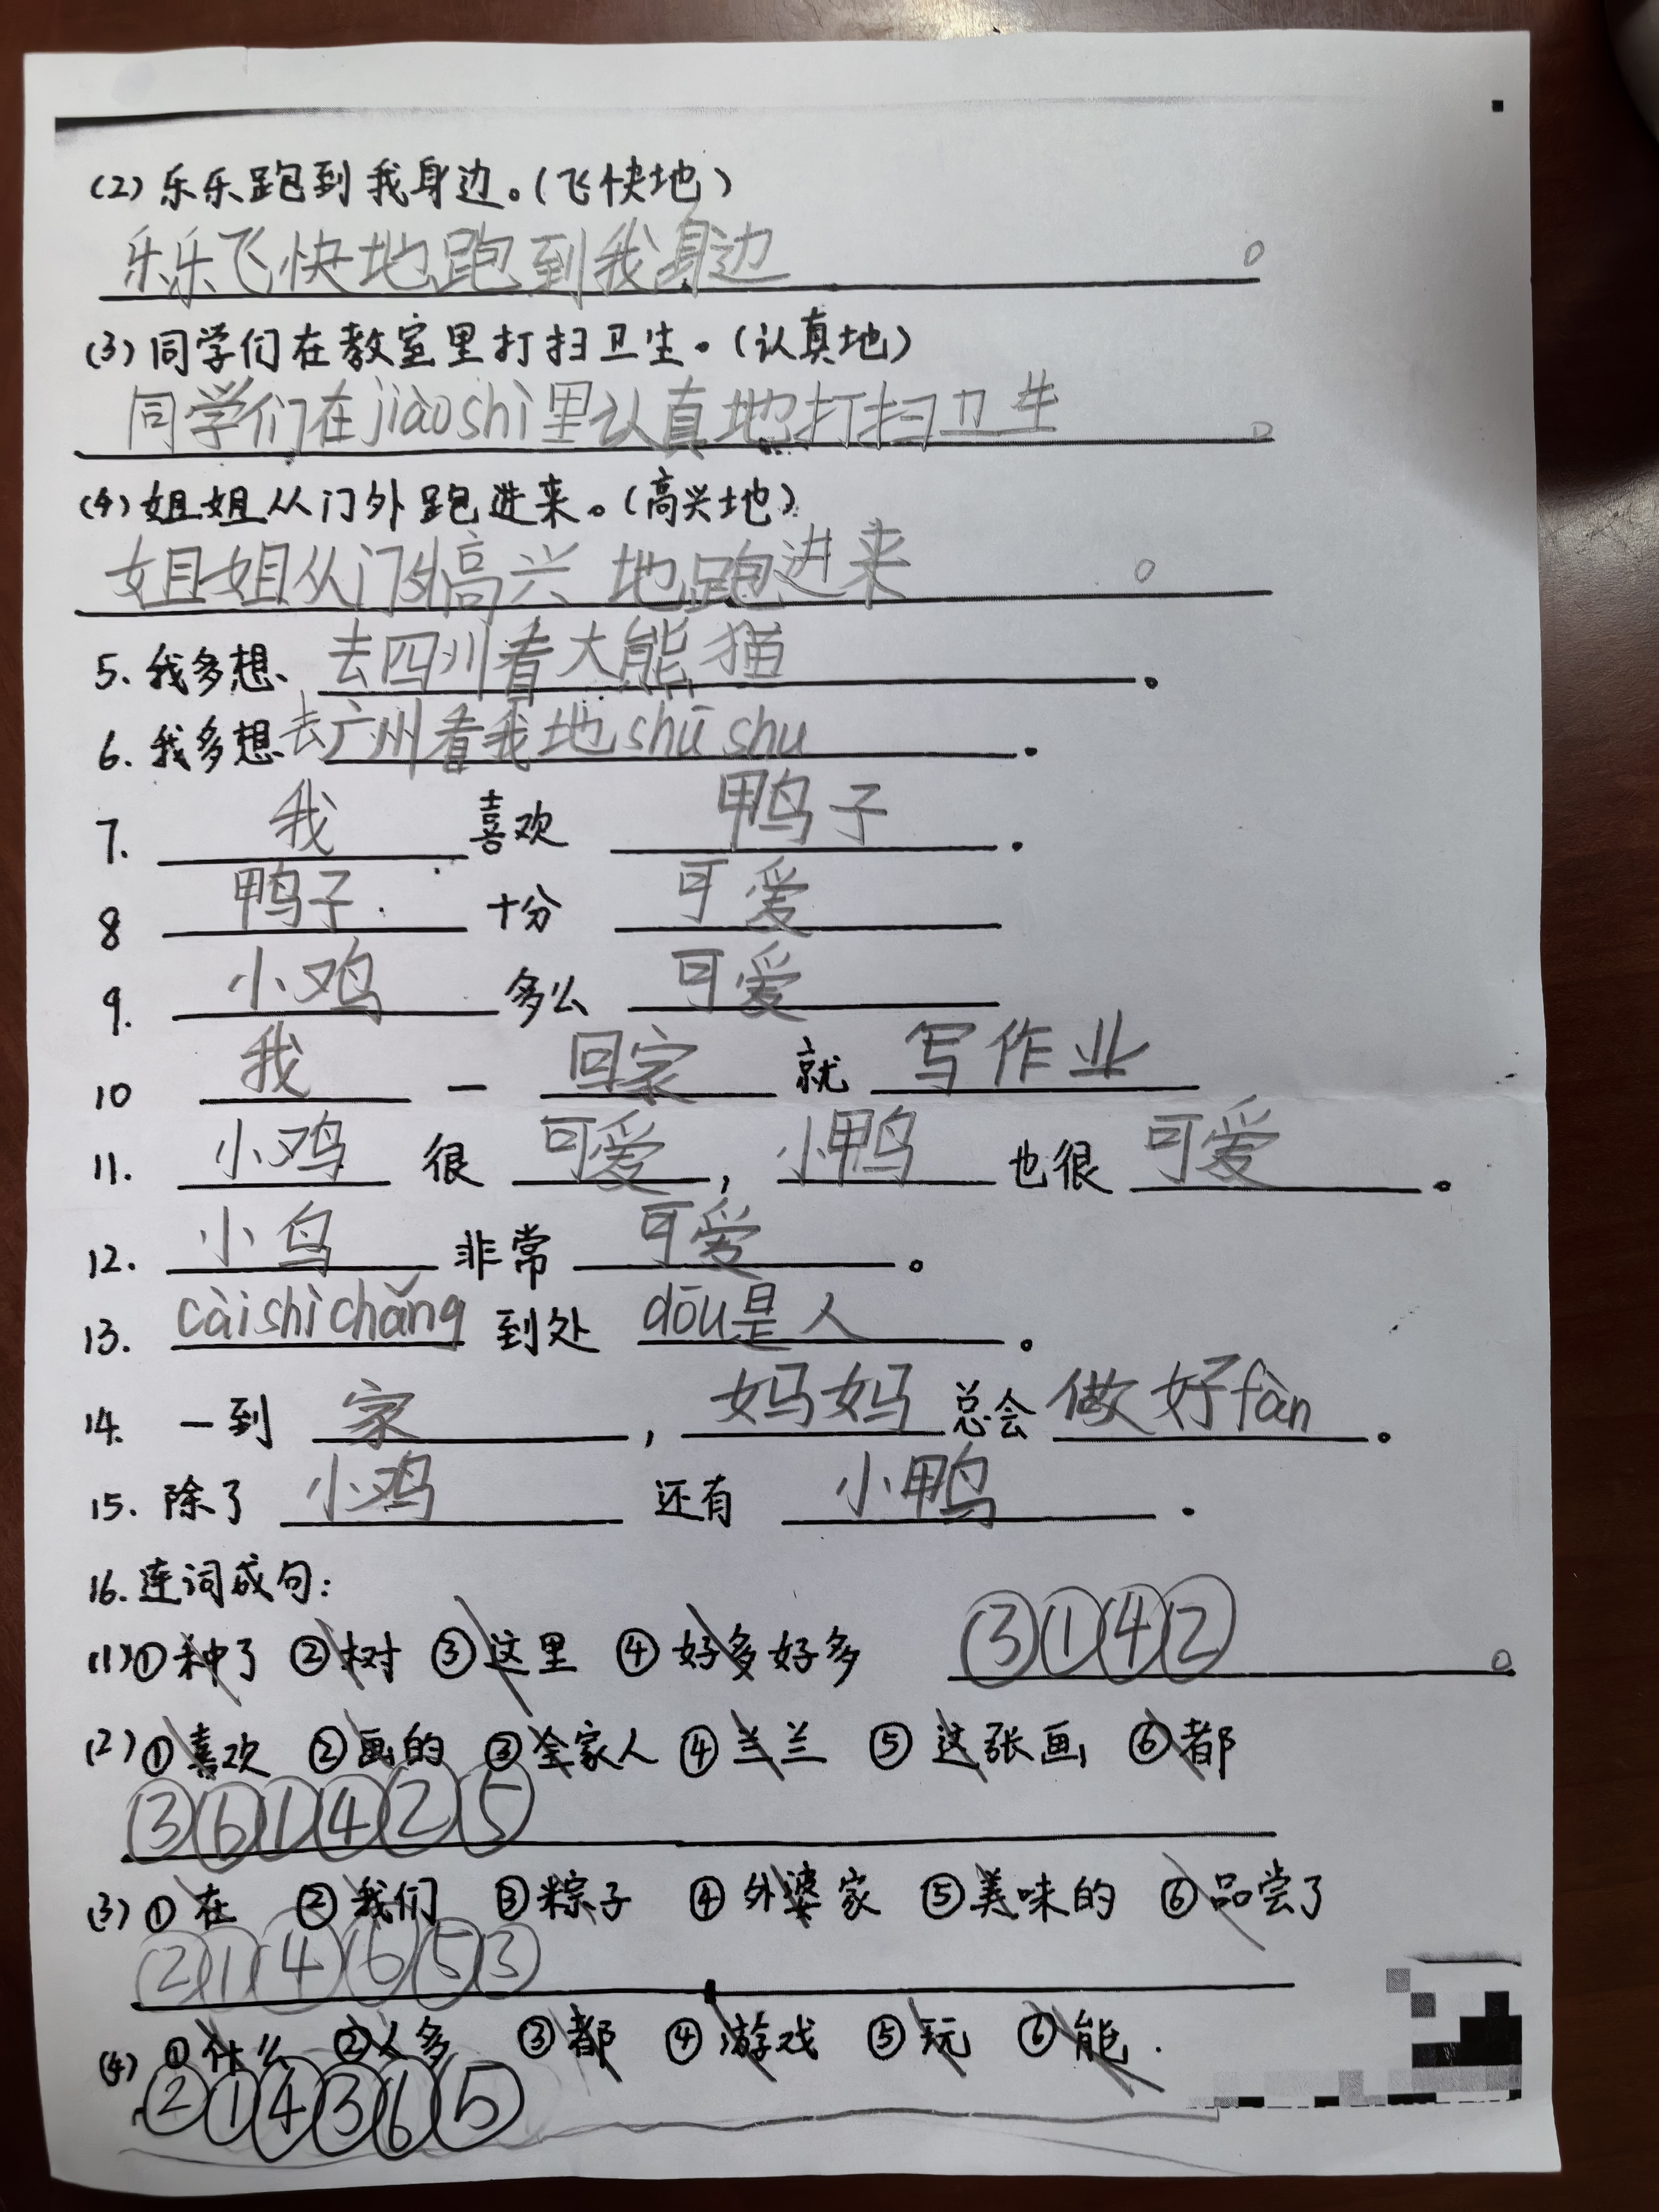 (2) 乐乐跑到我身边。(飞快地)
乐乐飞快地跑到我身边。
(3) 同学们在教室里打扫卫生。(认真地)
同学们在jiàoshì里认真地打扫卫生。
(4) 姐姐从门外跑进来。(高兴地)
姐姐从门外高兴地跑进来。
5. 我多想、去四川看大熊猫。
6. 我多想去广州看我地shūshu.
7. 我喜欢鸭子.
8 鸭子十分可爱
9. 小鸡多么可爱
10 我一回家就写作业
11. 小鸡很可爱,小鸭也很可爱。
12. 小鸟非常可爱。
13. càishìchǎng到处dōu是人。
14. 一到家,妈妈总会做好fàn。
15. 除了小鸡还有小鸭.
16. 连词成句:
(1) ①种了 ②树 ③这里 ④好多好多 ③①④②。
(2) ①喜欢 ②画的 ③全家人 ④兰兰 ⑤这张画 ⑥都
③⑥①④②⑤
(3) ①在 ②我们 ③粽子 ④外婆家 ⑤美味的 ⑥品尝了
②①④⑥⑤③
(4) ①什么 ②人多 ③都 ④游戏 ⑤玩 ⑥能.
②①④③⑥⑤